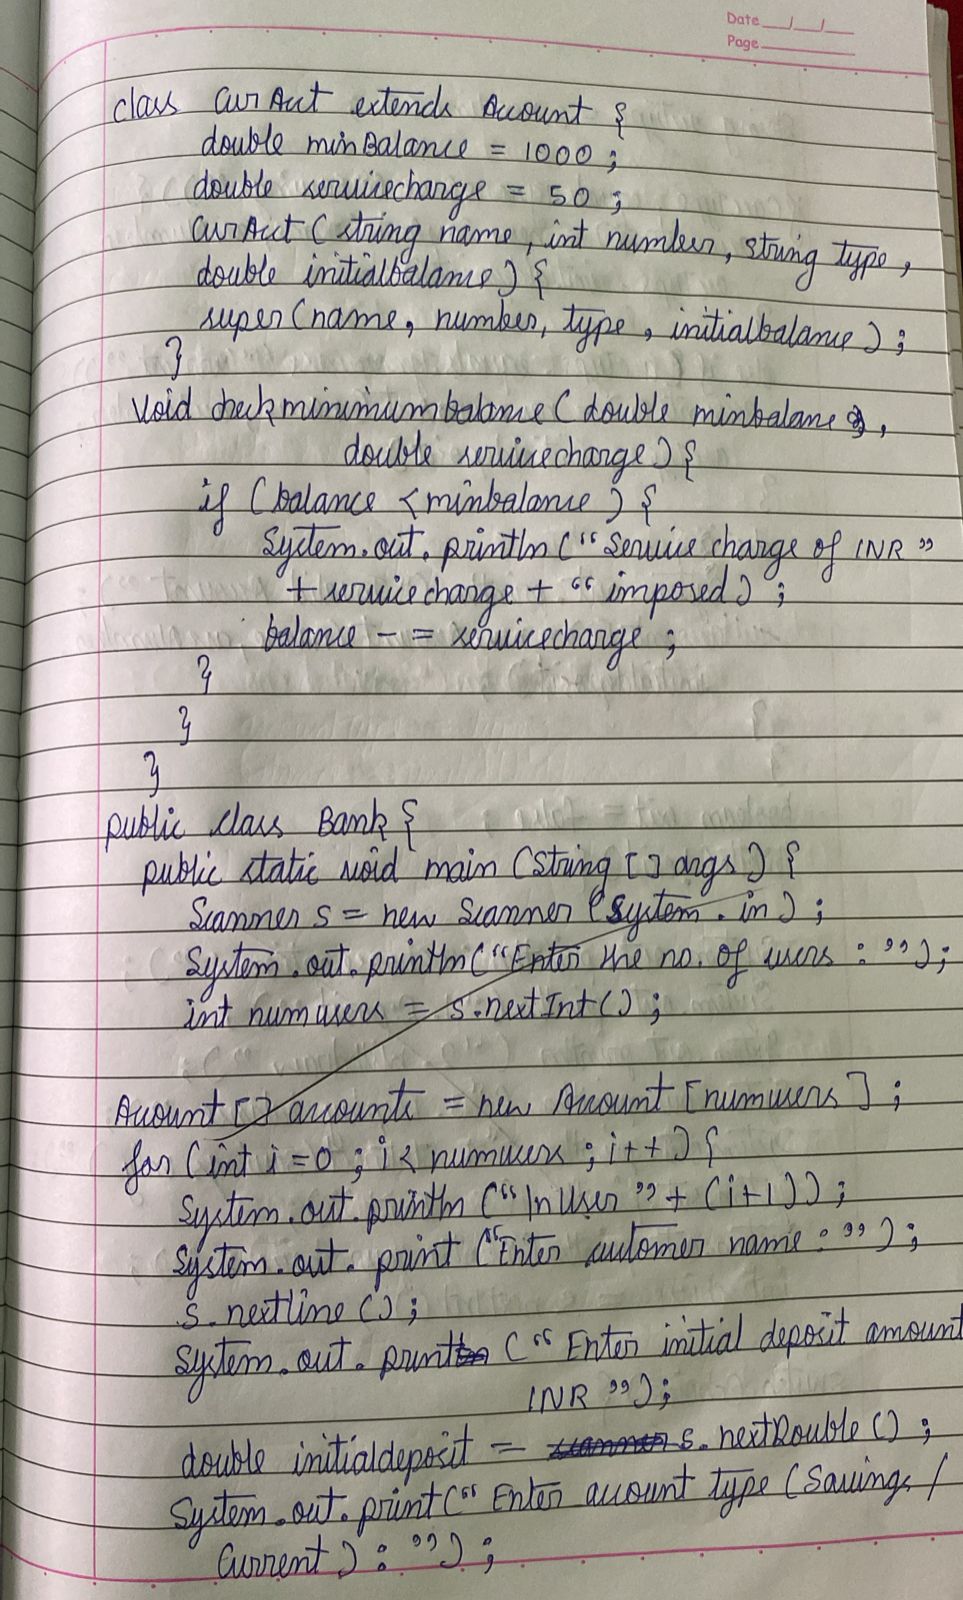 Date __/__/__
Page
class CurAcct extends Account {
double minBalance = 1000 ;
double servicecharge = 50 ;
CurAcct ( string name, int number, string type,
double initialbalance) {
super (name, number, type, initialbalance) ;
}
void checkminimumbalance ( double minbalance,
double servicecharge) {
if (balance < minbalance ) {
System.out.println (“ Service charge of INR ”
+ servicecharge + “ imposed) ;
balance - = servicecharge ;
}
}
}
public class Bank {
public static void main (String [] args) {
Scanner s = new Scanner (System.in) ;
System.out.println (“Enter the no. of users : ”) ;
int numusers = s.nextInt () ;
Account [] accounts = new Account [numusers] ;
for (int i = 0 ; i < numusers ; i++) {
System.out.println (“\n User ” + (i+1)) ;
System.out.print (“Enter customer name : ”) ;
s.nextline () ;
System.out.print (“ Enter initial deposit amount
INR ”) ;
double initialdeposit = s.nextDouble () ;
System.out.print (“ Enter account type (Savings /
Current ) : ”) ;